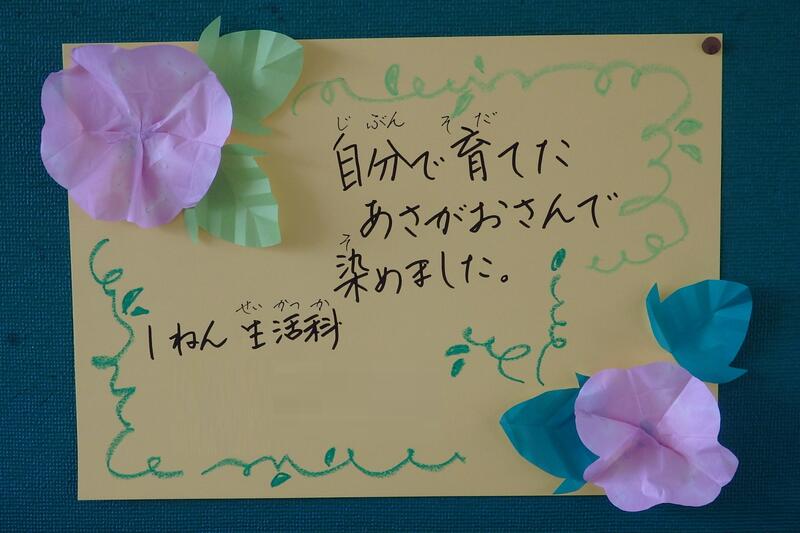 じぶん そだ
自分で育てた
あさがおさんで
そ
染めました。
せいかつか
1ねん 生活科